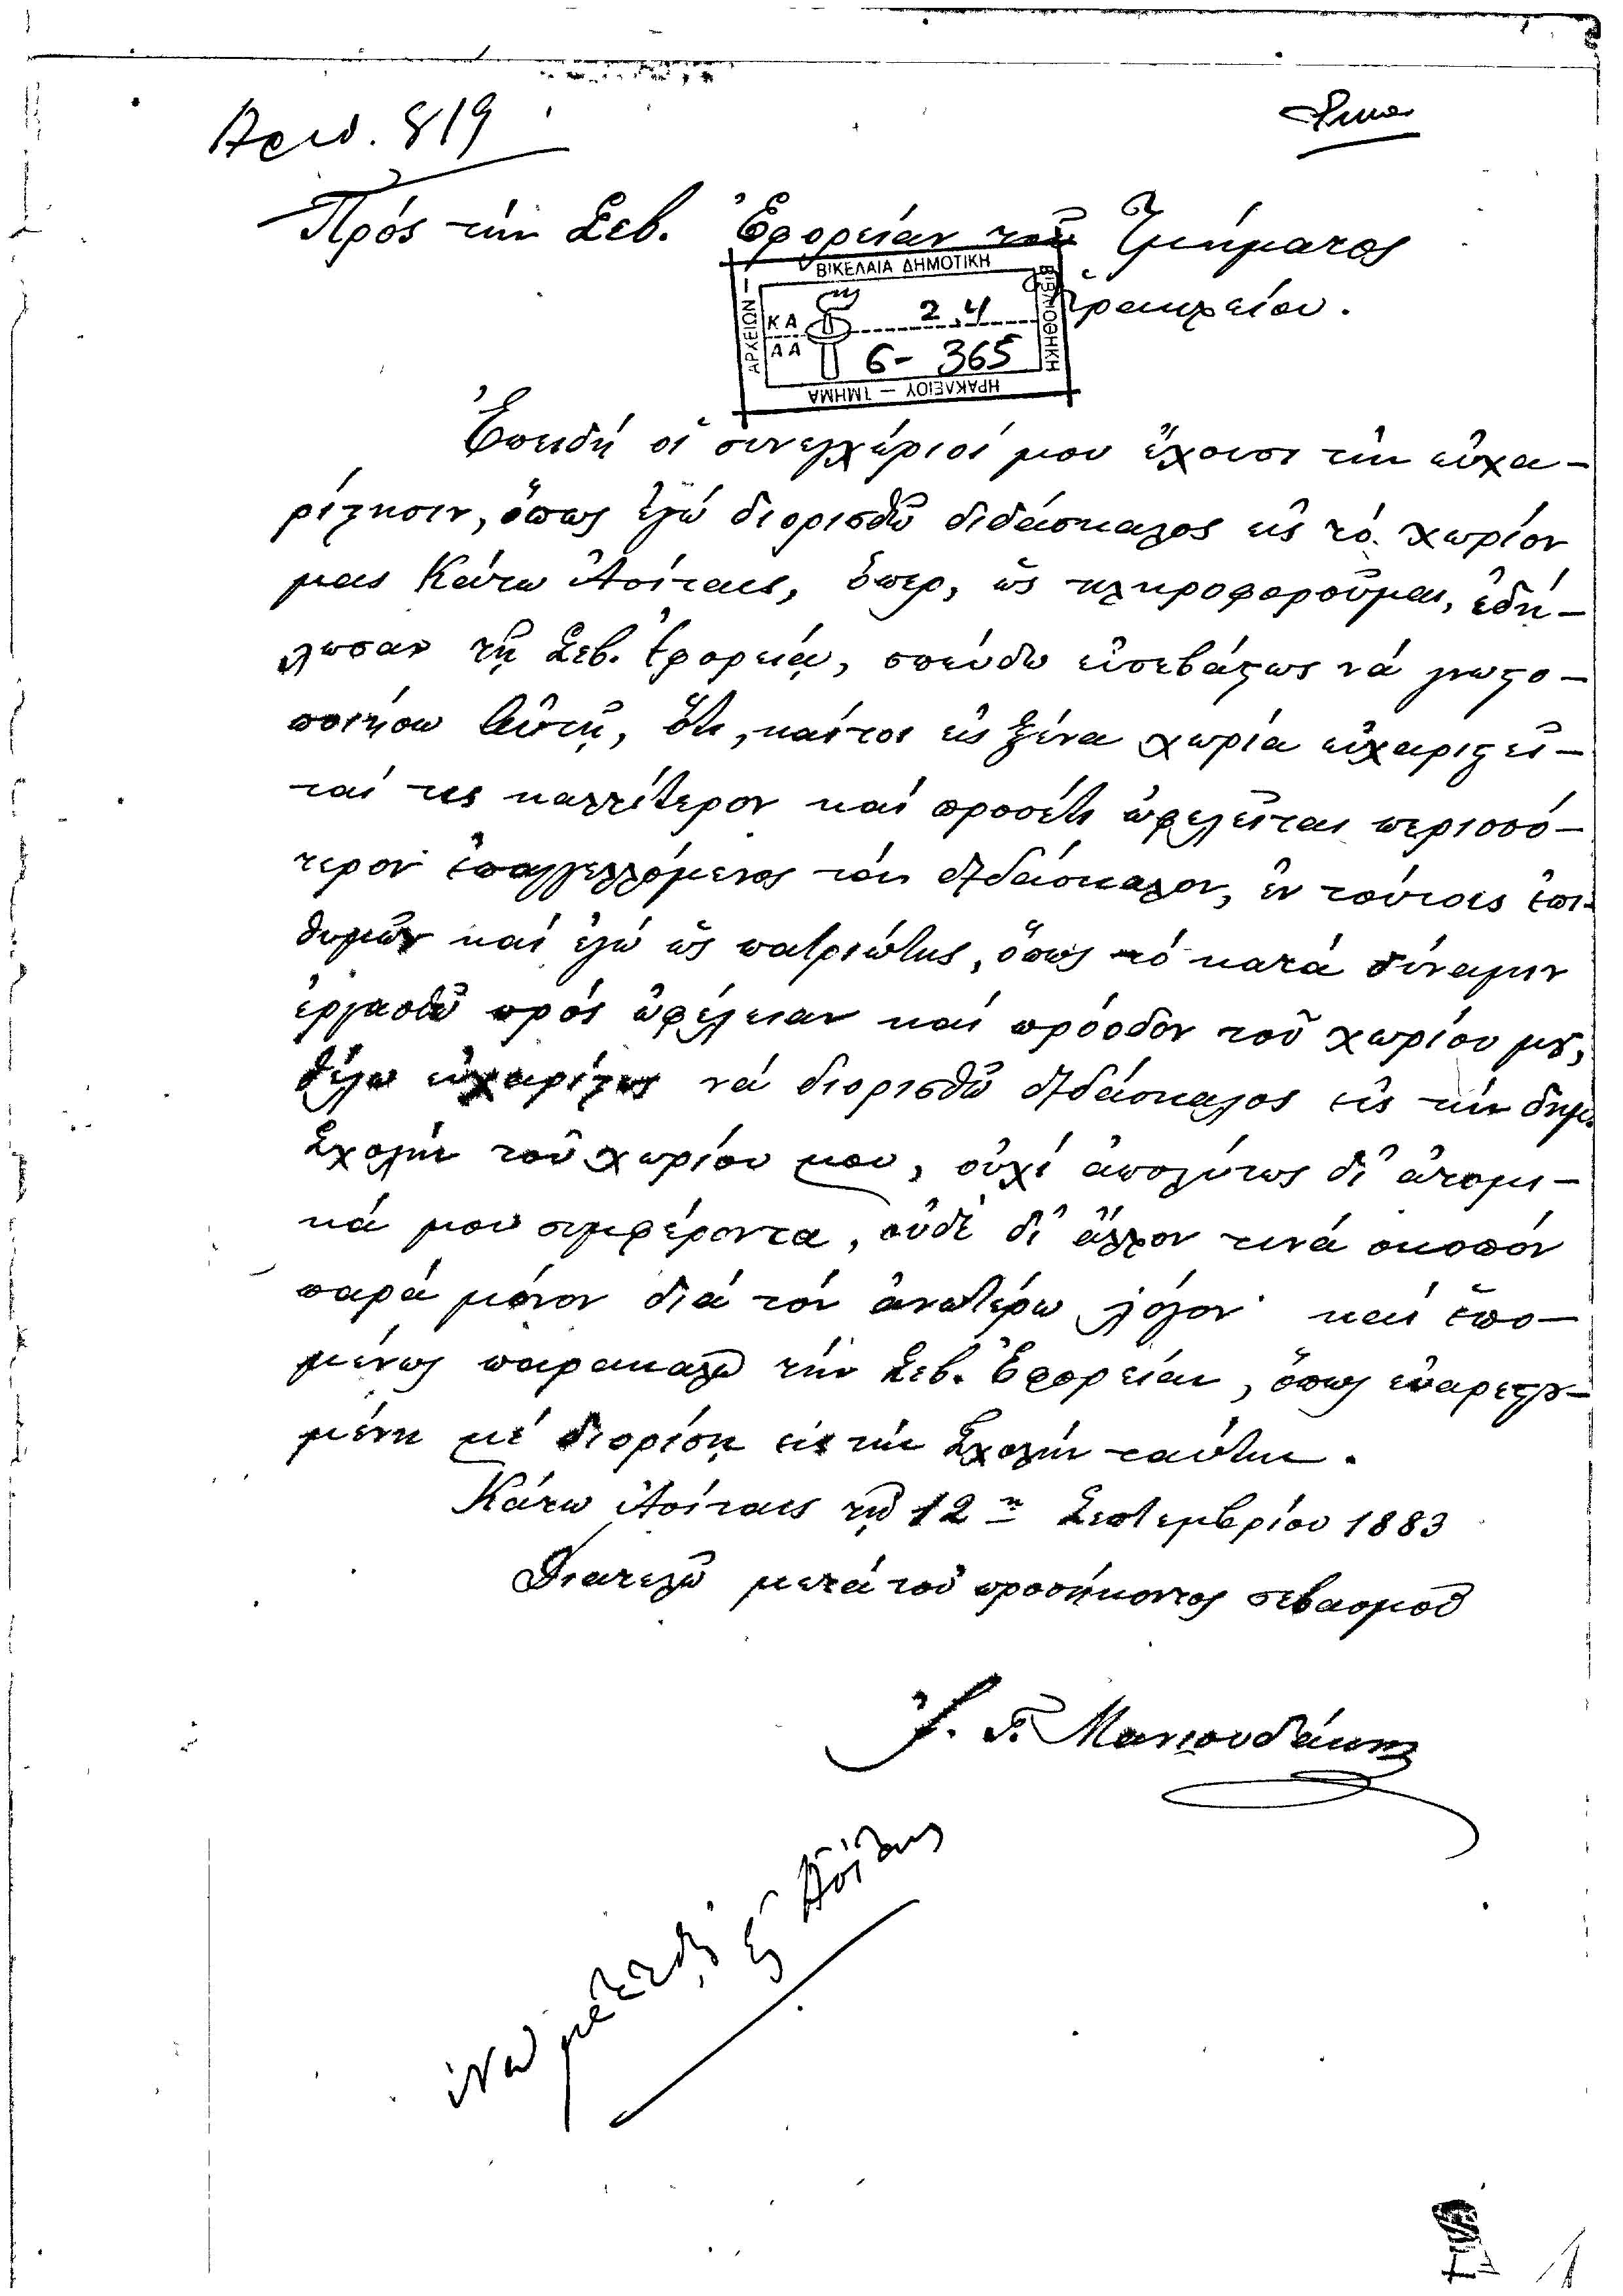 Αριθ. 819
Πρός τήν Σεβ. Ἐφορείαν τοῦ Τμήματος
Ἡρακλείου.
ΒΙΚΕΛΑΙΑ ΔΗΜΟΤΙΚΗ
ΒΙΒΛΙΟΘΗΚΗ
ΗΡΑΚΛΕΙΟΥ — ΤΜΗΜΑ
ΑΡΧΕΙΩΝ —
ΚΑ 2.4
ΑΑ 6- 365
Ἐπειδή οἱ συνεγχώριοί μου ἔχουσι τήν εὐχα-
ρίστησιν, ὅπως ἐγώ διορισθῶ διδάσκαλος εἰς τό χωρίον
μας Κάτω Ἀσίταις, ὅπερ, ὡς πληροφοροῦμαι, ἐδή-
λωσαν τῇ Σεβ. Ἐφορείᾳ, σπεύδω εὐσεβάστως νά γνωστο-
ποιήσω Αὐτῇ, ὅτι, καίτοι εἰς ξένα χωρία εὐχαριστεῖ-
ταί τις καλλίτερον καί προσέτι ὠφελεῖται περισσό-
τερον ἐπαγγελλόμενος τόν διδάσκαλον, ἐν τούτοις ἐπι-
θυμῶν καί ἐγώ ὡς πατριώτης, ὅπως τό κατά δύναμιν
ἐργασθῶ πρός ὠφέλειαν καί πρόοδον τοῦ χωρίου μȣ,
θέλω εὐχαρίστως νά διορισθῶ διδάσκαλος εἰς τήν δημ.
Σχολήν τοῦ χωρίου μου, οὐχί ἀπολύτως δι' ἀτομι-
κά μου συμφέροντα, οὐδέ δι' ἄλλον τινά σκοπόν
παρά μόνον διά τόν ἀνωτέρω λόγον· καί ἑπο-
μένως παρακαλῶ τήν Σεβ. Ἐφορείαν, ὅπως εὐαρεστȣ-
μένη μέ διορίσῃ εἰς τήν Σχολήν ταύτην.
Κάτω Ἀσίταις τῇ 12ῃ Σεπτεμβρίου 1883
Διατελῶ μετά τοῦ προσήκοντος σεβασμοῦ
Μανιουδάκης
μετετέθη εἰς Ἀσίταις